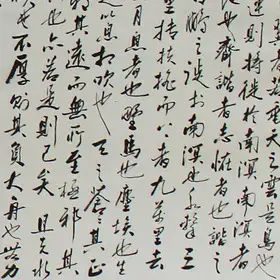 垂天之雲是鳥也
則將徙於南溟南溟者
也齊諧者志怪者也諧之
鵬之徙於南溟也水擊三
里摶扶搖而上者九萬里去
月息者也野馬也塵埃也生
之以息相吹也天之蒼蒼其正
其遠而無所至極邪其
也亦若是則已矣且夫水
也不厚則其負大舟也無力